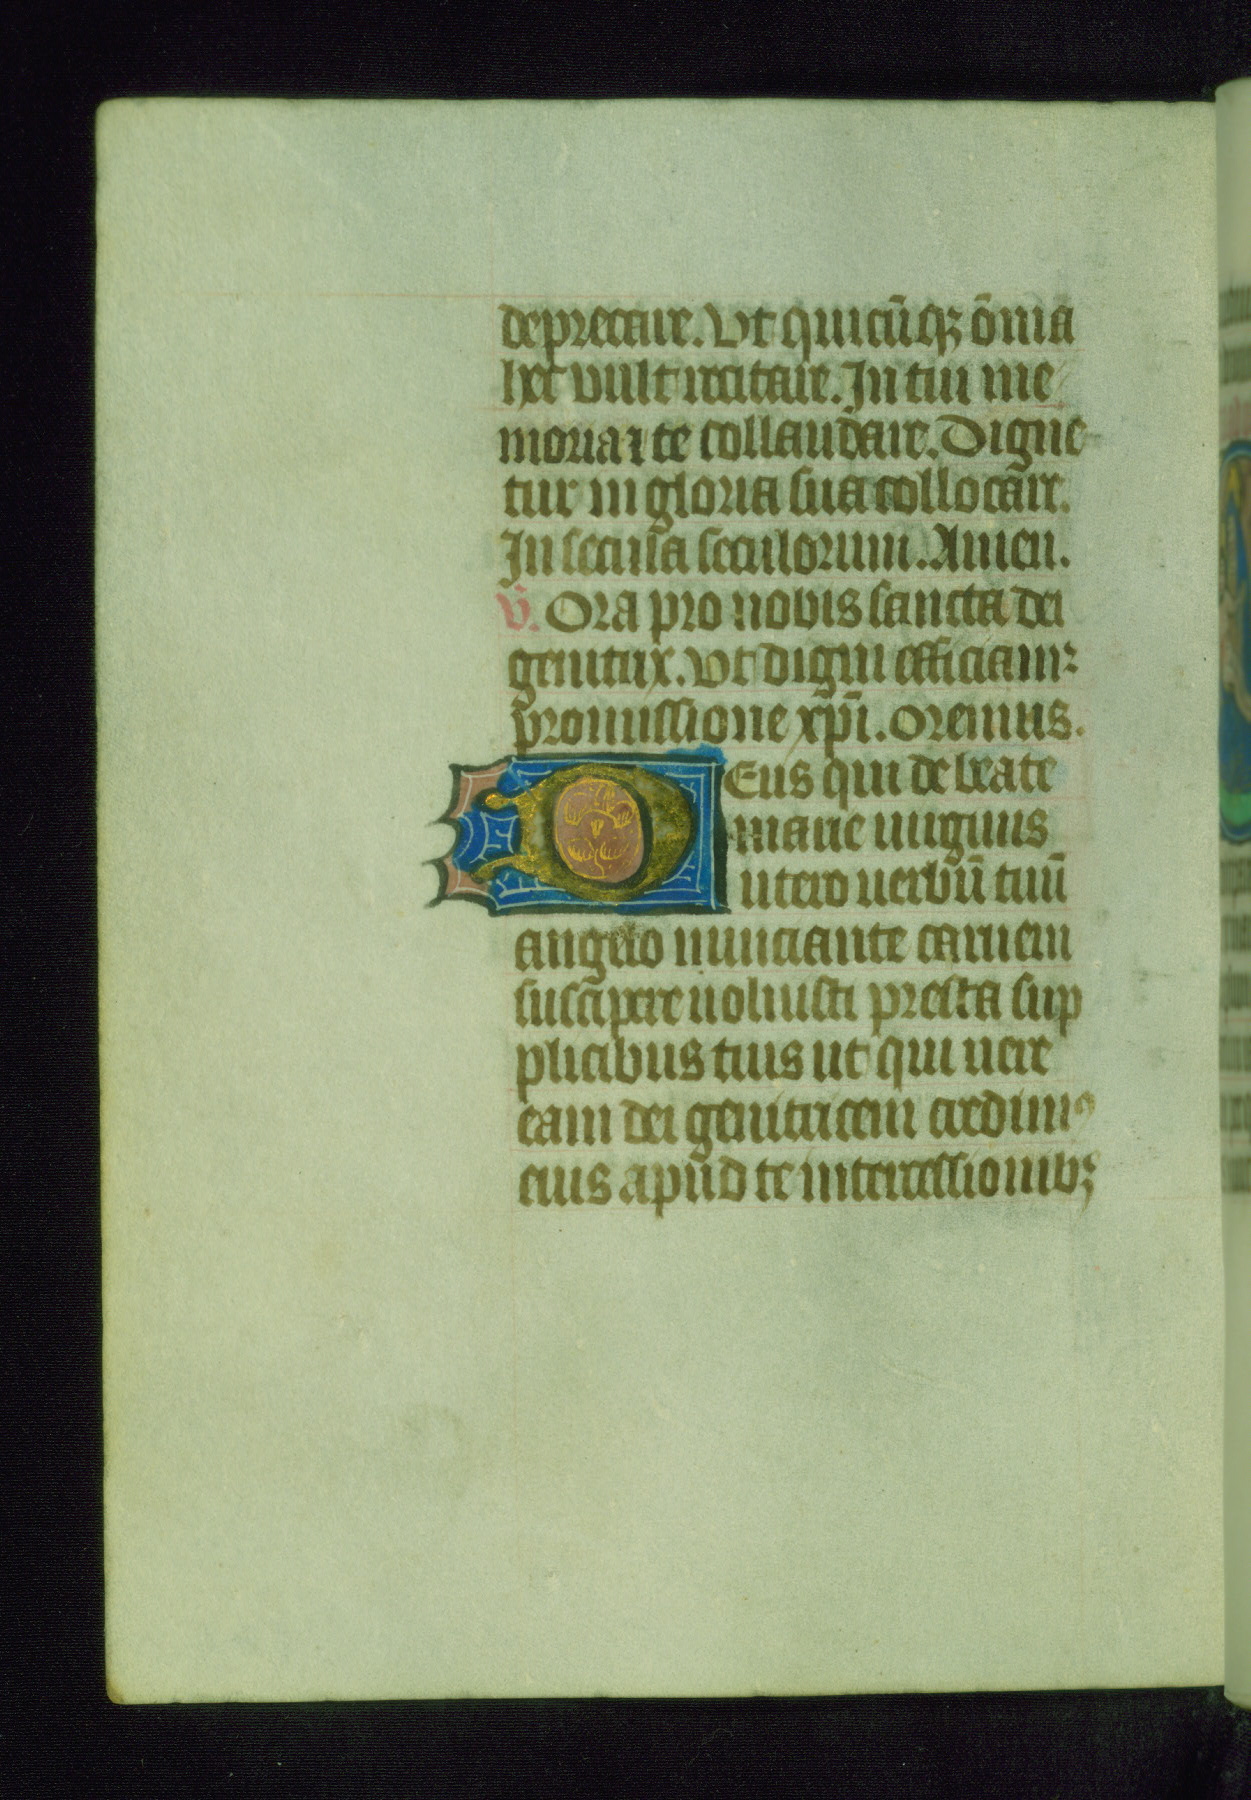 deprecare. Vt quicūqꝫ ōmia
hec vult recitare. In tui me
moria ⁊ te collaudare. Digne
tur in gloria sua collocare.
In secula seculorum. Amen.
v̄. Ora pro nobis sancta dei
genitrix. Vt digni efficiamr
promissione xp̄i. Oremus.
DEus qui de beate
marie uirginis
utero uerbū tuū
angelo nunciante carnem
suscipere uoluisti presta sup
plicibus tuis ut qui uere
eam dei genitricem credimꝰ
eius apud te intercessionibꝫ